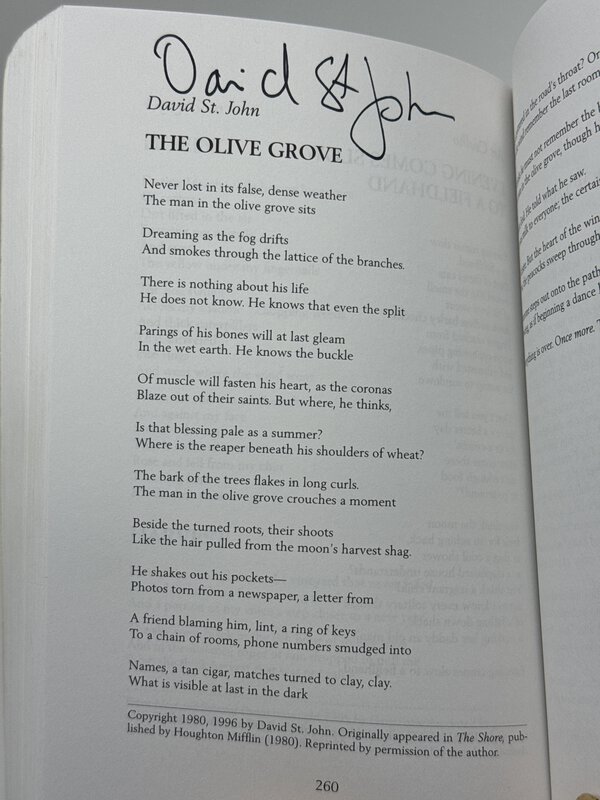 David St John
David St. John
THE OLIVE GROVE
Never lost in its false, dense weather
The man in the olive grove sits
Dreaming as the fog drifts
And smokes through the lattice of the branches.
There is nothing about his life
He does not know. He knows that even the split
Parings of his bones will at last gleam
In the wet earth. He knows the buckle
Of muscle will fasten his heart, as the coronas
Blaze out of their saints. But where, he thinks,
Is that blessing pale as a summer?
Where is the reaper beneath his shoulders of wheat?
The bark of the trees flakes in long curls.
The man in the olive grove crouches a moment
Beside the turned roots, their shoots
Like the hair pulled from the moon's harvest shag.
He shakes out his pockets—
Photos torn from a newspaper, a letter from
A friend blaming him, lint, a ring of keys
To a chain of rooms, phone numbers smudged into
Names, a tan cigar, matches turned to clay, clay.
What is visible at last in the dark
Copyright 1980, 1996 by David St. John. Originally appeared in The Shore, pub-
lished by Houghton Mifflin (1980). Reprinted by permission of the author.
260
in the road's throat? Or
remember the last room
must not remember the
in the olive grove, though h
He told what he saw.
to everyone; the certai
But the heart of the win
peacocks sweep through
steps out onto the path
as if beginning a dance
is over. Once more.